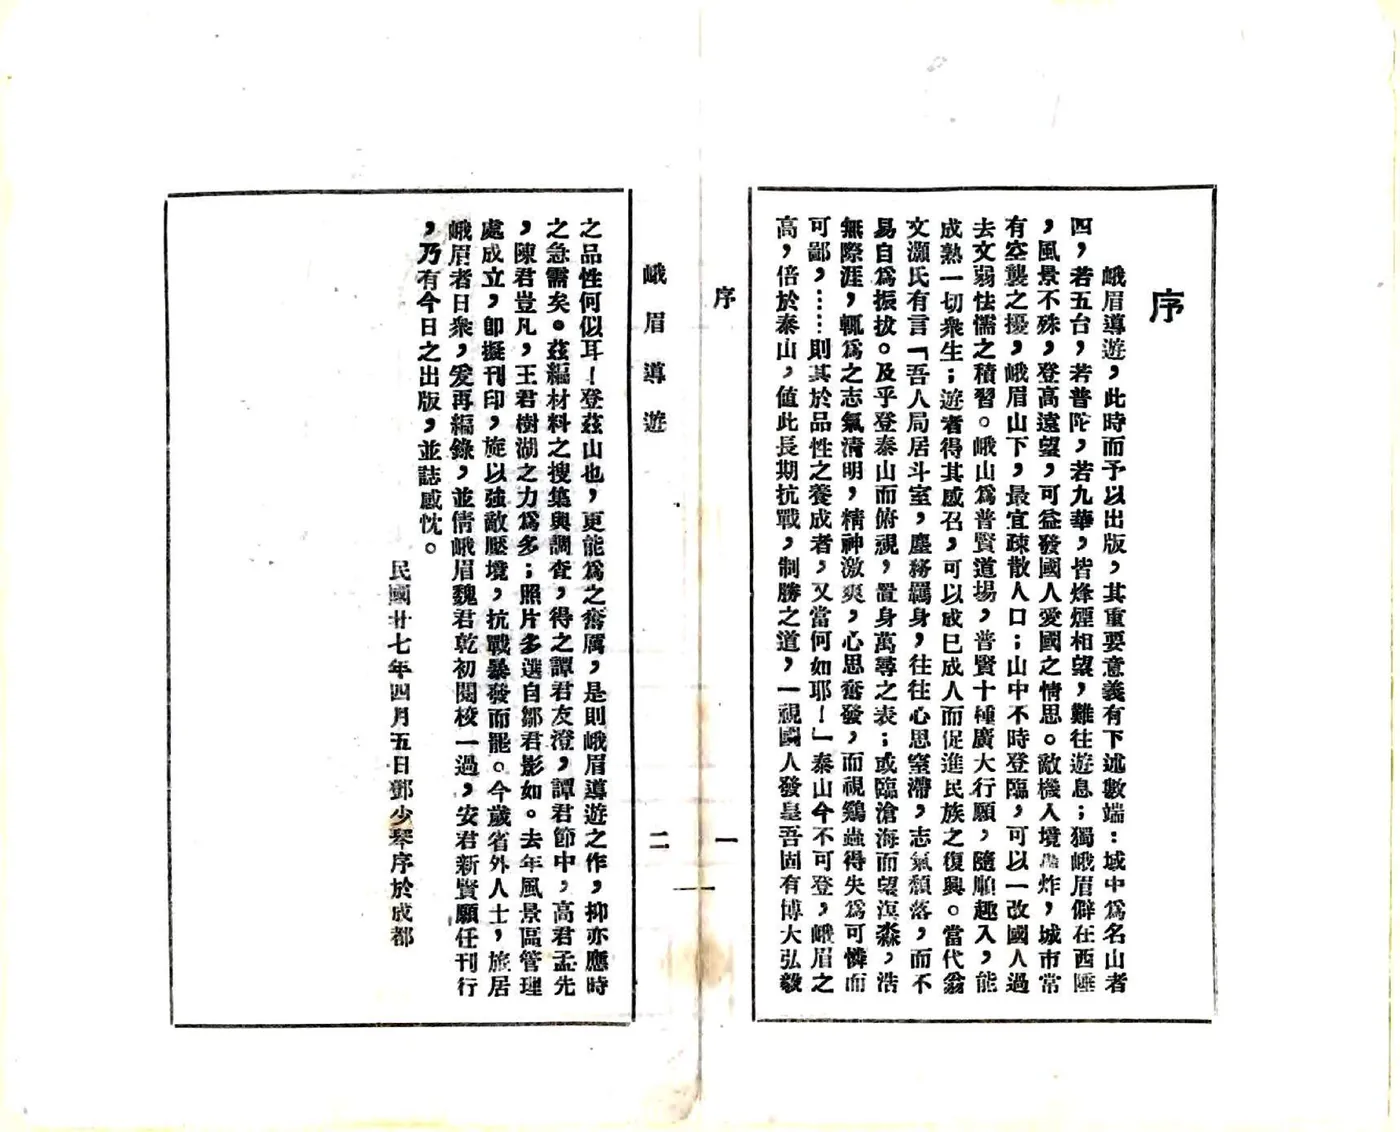 序
峨眉導遊，此時而予以出版，其重要意義有下述數端：域中爲名山者
四，若五台，若普陀，若九華，皆烽煙相望，難往遊息；獨峨眉僻在西陲
，風景不殊，登高遠望，可益發國人愛國之情思。敵機入境轟炸，城市常
有空襲之擾，峨眉山下，最宜疎散人口；山中不時登臨，可以一改國人過
去文弱怯懦之積習。峨山爲普賢道場，普賢十種廣大行願，隨順趣入，能
成熟一切衆生；遊者得其感召，可以成已成人而促進民族之復興。當代翁
文灝氏有言「吾人局居斗室，塵務羈身，往往心思窒滯，志氣頹落，而不
易自爲振拔。及乎登泰山而俯視，置身萬尋之表；或臨滄海而望溟淼，浩
無際涯，輒爲之志氣清明，精神激爽，心思奮發，而視鷄蟲得失爲可憐而
可鄙，……則其於品性之養成者，又當何如耶！」泰山今不可登，峨眉之
高，倍於泰山，值此長期抗戰，制勝之道，一視國人發皇吾固有博大弘毅
序
一
峨眉導遊
二
之品性何似耳！登茲山也，更能爲之奮厲，是則峨眉導遊之作，抑亦應時
之急需矣。茲編材料之搜集與調查，得之譚君友澄，譚君節中，高君孟先
，陳君豈凡，王君樹湖之力爲多；照片多選自鄒君影如。去年風景區管理
處成立，卽擬刊印，旋以強敵壓境，抗戰暴發而罷。今歲省外人士，旅居
峨眉者日衆，爰再編錄，並倩峨眉魏君乾初閱校一過，安君新賢願任刊行
，乃有今日之出版，並誌感忱。
民國廿七年四月五日鄧少琴序於成都